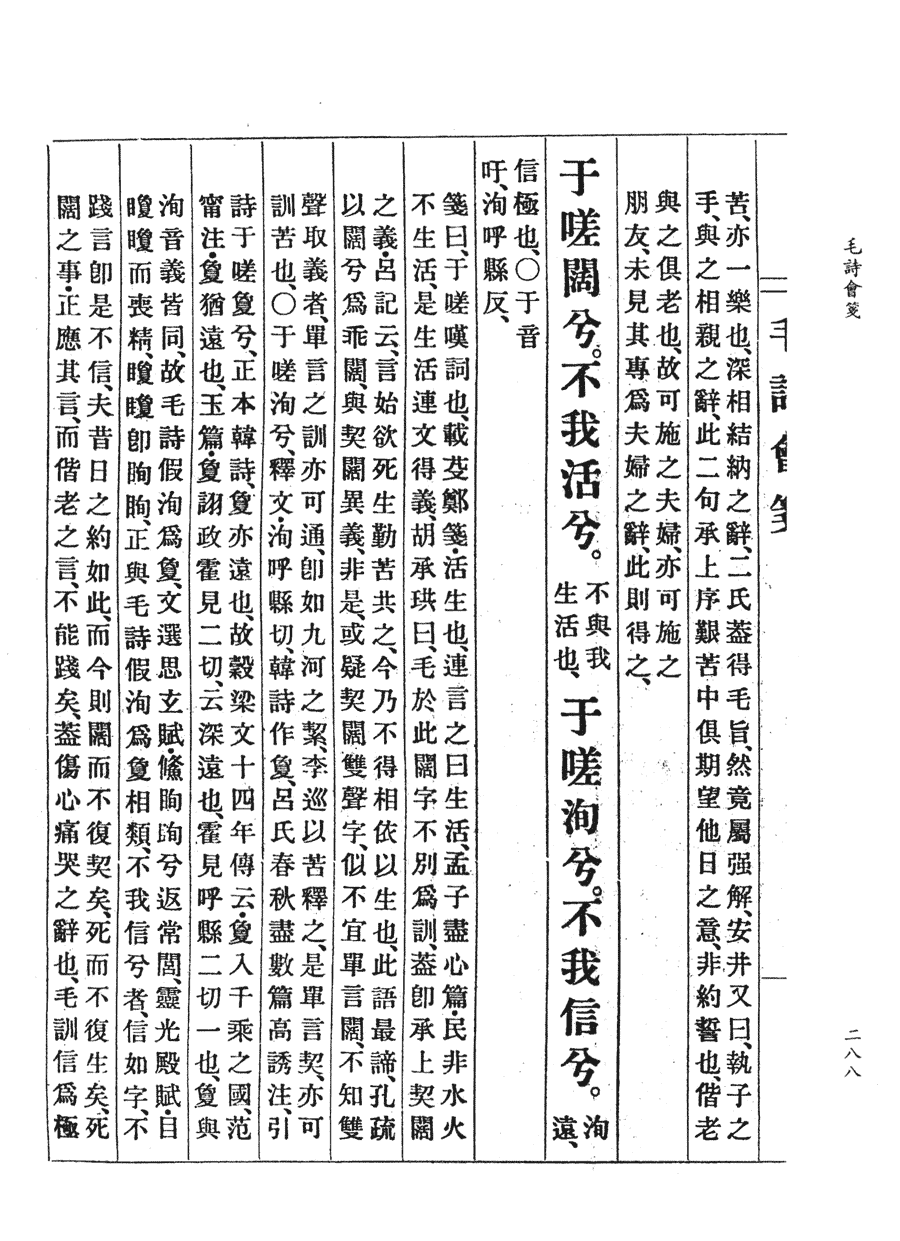 毛詩會箋
二八八
毛詩會箋
苦、亦一樂也、深相結納之辭、二氏葢得毛旨、然竟屬强解、安井又曰、執子之
手、與之相親之辭、此二句承上序艱苦中俱期望他日之意、非約誓也、偕老
與之俱老也、故可施之夫婦、亦可施之
朋友、未見其專爲夫婦之辭、此則得之、
于嗟闊兮。不我活兮。不與我
生活也、于嗟洵兮。不我信兮。洵
遠、
信極也、〇于音
吁、洵呼縣反、
箋曰、于嗟嘆詞也、載芟鄭箋・活生也、連言之曰生活、孟子盡心篇・民非水火
不生活、是生活連文得義、胡承珙曰、毛於此闊字不別爲訓、葢卽承上契闊
之義・呂記云、言始欲死生勤苦共之、今乃不得相依以生也、此語最諦、孔疏
以闊兮爲乖闊、與契闊異義、非是、或疑契闊雙聲字、似不宜單言闊、不知雙
聲取義者、單言之訓亦可通、卽如九河之絜、李巡以苦釋之、是單言契、亦可
訓苦也、〇于嗟洵兮、釋文・洵呼縣切、韓詩作敻、呂氏春秋盡數篇高誘注、引
詩于嗟敻兮、正本韓詩、敻亦遠也、故穀梁文十四年傳云・敻入千乘之國、范
甯注・敻猶遠也、玉篇・敻詡政霍見二切、云深遠也、霍見呼縣二切一也、敻與
洵音義皆同、故毛詩假洵爲敻、文選思玄賦・儵眴眴兮返常閭、靈光殿賦・目
矎矎而喪精、矎矎卽眴眴、正與毛詩假洵爲敻相類、不我信兮者、信如字、不
踐言卽是不信、夫昔日之約如此、而今則闊而不復契矣、死而不復生矣、死
闊之事・正應其言、而偕老之言、不能踐矣、葢傷心痛哭之辭也、毛訓信爲極